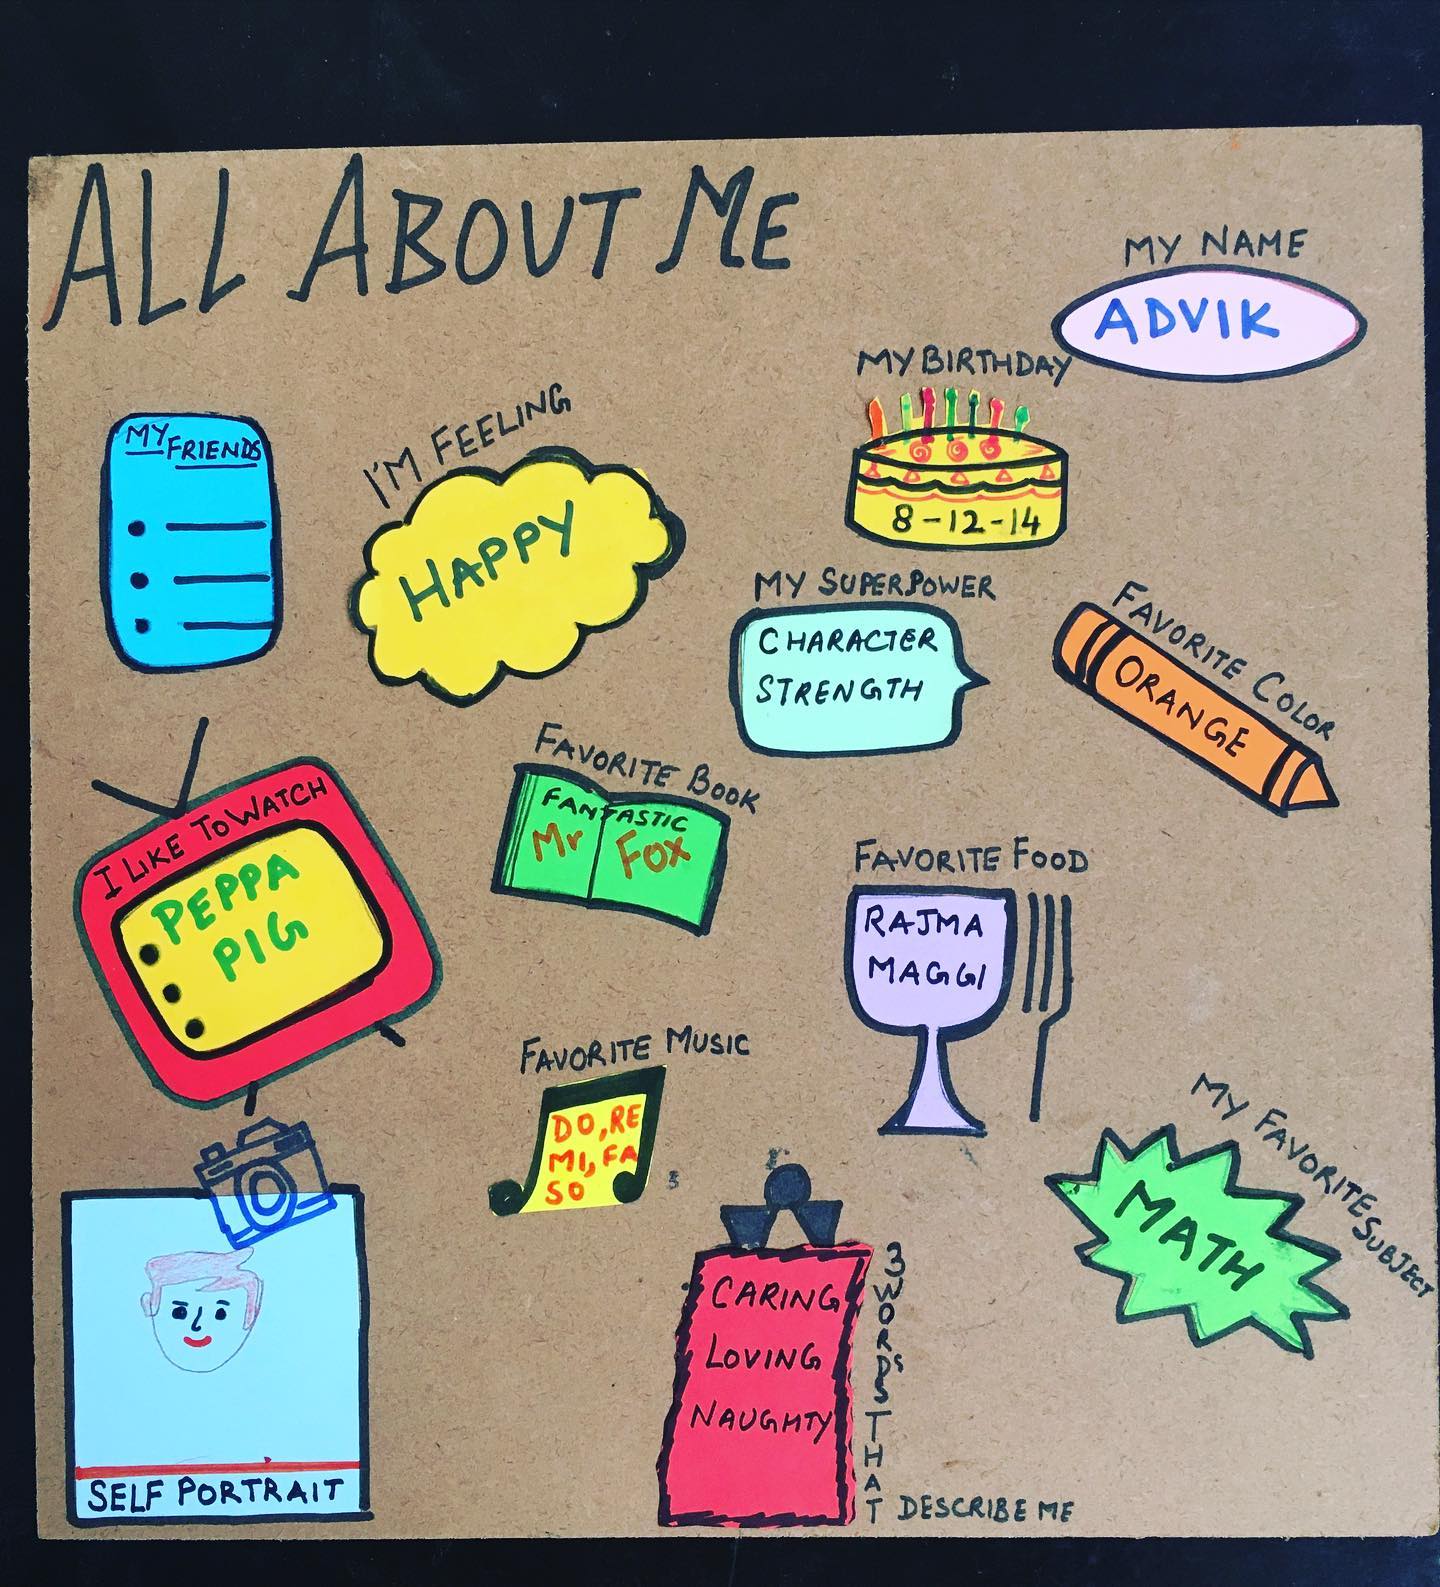 ALL ABOUT ME
MY NAME
ADVIK
MY BIRTHDAY
8-12-14
MY
FRIENDS
I'M FEELING
HAPPY
MY SUPERPOWER
CHARACTER
STRENGTH
FAVORITE COLOR
ORANGE
I LIKE TO WATCH
PEPPA
PIG
FAVORITE BOOK
FANTASTIC
Mr FOX
FAVORITE FOOD
RAJMA
MAGGI
FAVORITE MUSIC
DO, RE
MI, FA
SO
MY FAVORITE SUBJECT
MATH
SELF PORTRAIT
CARING
LOVING
NAUGHTY
3 WORDS THAT DESCRIBE ME